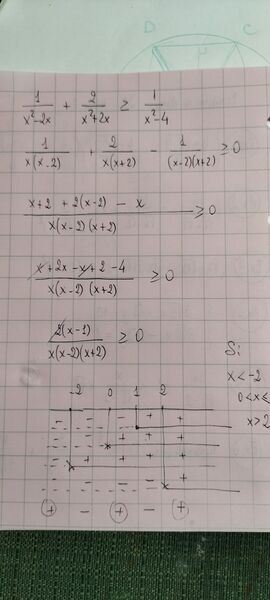 D C
1/(x²-2x) + 2/(x²+2x) ≥ 1/(x²-4)
1/(x(x-2)) + 2/(x(x+2)) - 1/((x-2)(x+2)) ≥ 0
(x+2 + 2(x-2) - x)/(x(x-2)(x+2)) ≥ 0
(x+2x-x+2-4)/(x(x-2)(x+2)) ≥ 0
2(x-1)/(x(x-2)(x+2)) ≥ 0
Si:
x<-2
0<x≤
x>2
-2 0 1 2
- - - + +
- - + + +
- + + + +
- - - - +
+ - + - +